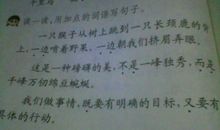 读一读,用加点的词语写句子。
一只猴子从树上跳到一只长颈鹿的背
上,一边啃着野果,一边朝我们挤眉弄眼。
这是一种磅礴的美,不是一峰独秀,而是
千峰万仞绵亘蜿蜒。
我们做事情,既要有明确的目标,又要有
具体的行动。